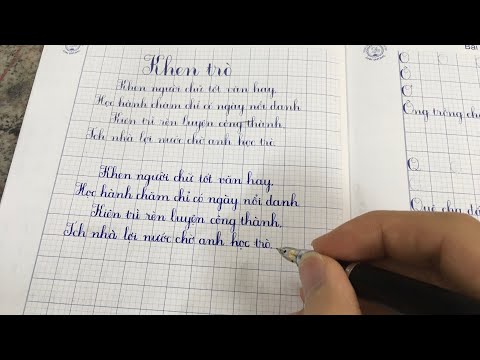 Khen trò
Khen người chữ tốt văn hay.
Học hành chăm chỉ có ngày nổi danh
Kiên trì rèn luyện công thành,
Ích nhà lợi nước chờ anh học trò.
Khen người chữ tốt văn hay.
Học hành chăm chỉ có ngày nổi danh
Kiên trì rèn luyện công thành,
Ích nhà lợi nước chờ anh học trò.
Bài
Ông trông ch
Quê cha đấ